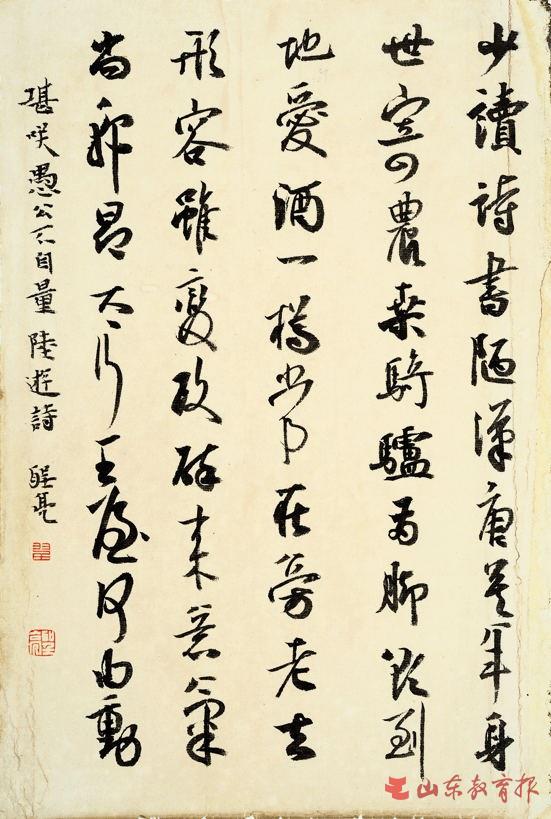 少讀詩書陋漢唐暮年身
世寄農桑騎驢兩脚欲到
地愛酒一樽常在旁老去
形容雖變改醉來意氣
尚軒昂太行王屋何由動
堪咲愚公不自量 陸遊詩
山东教育报